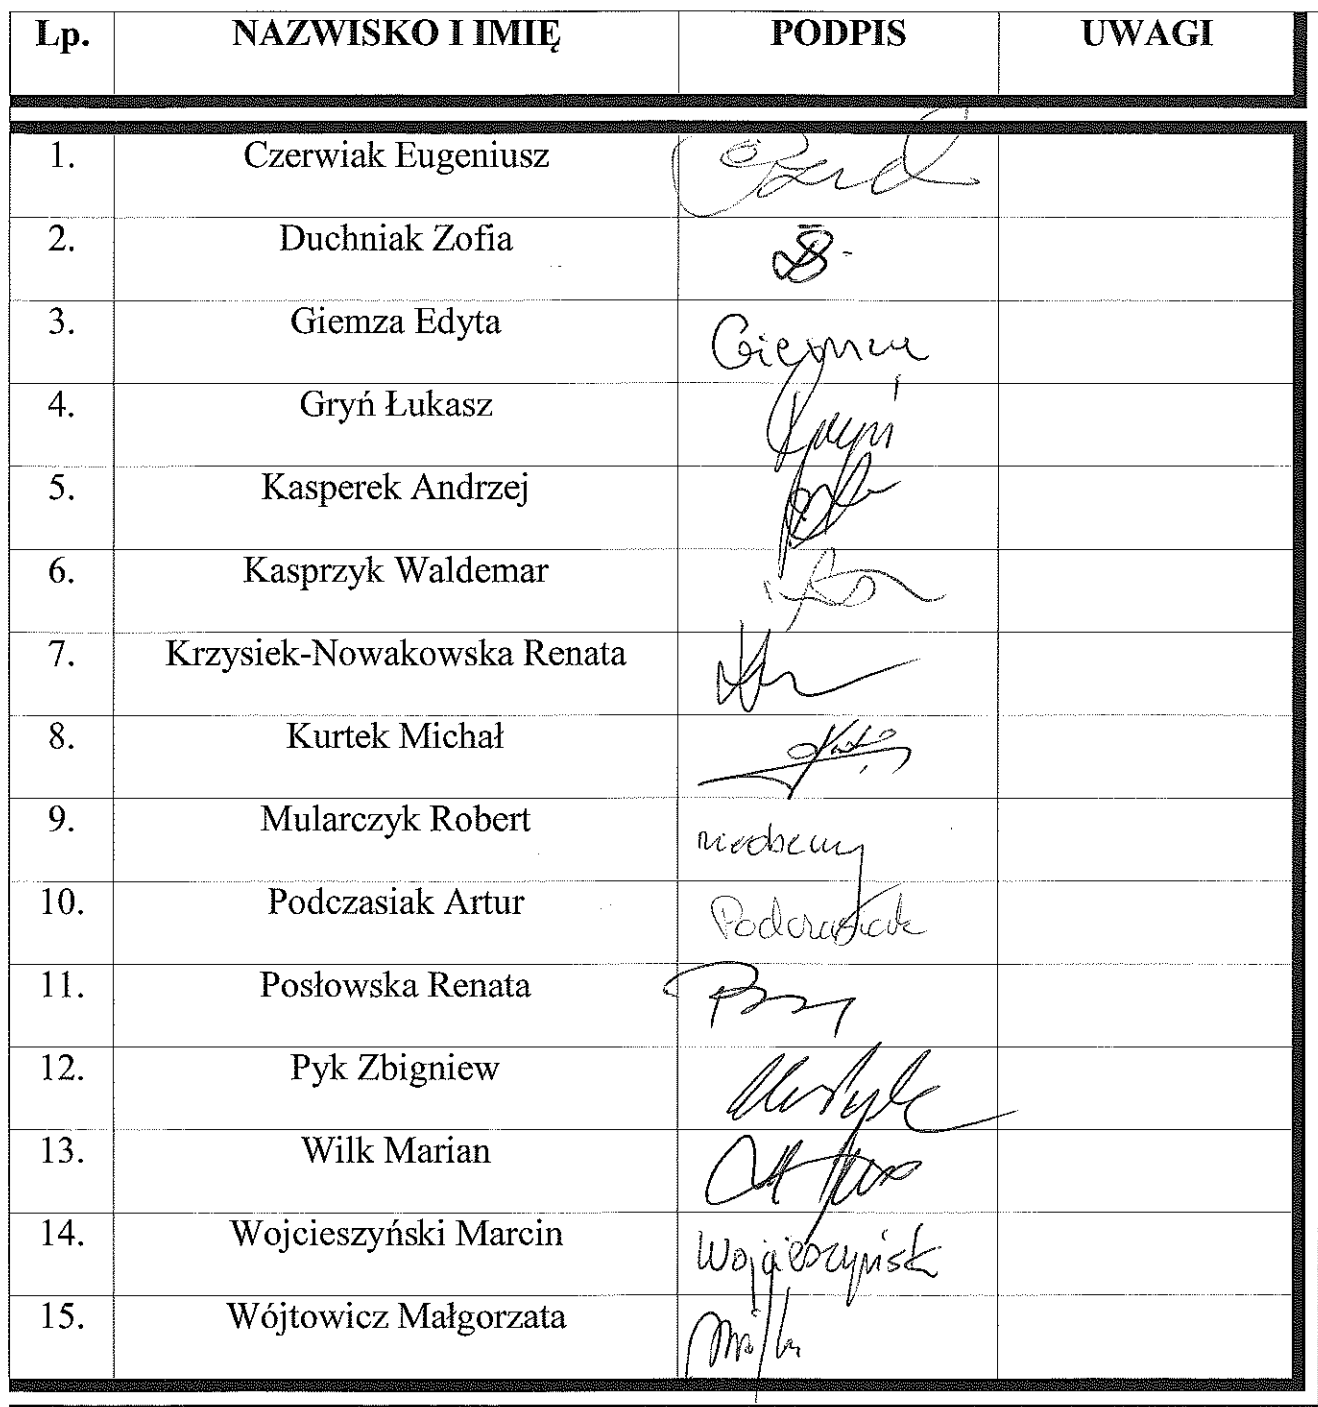 Lp. NAZWISKO I IMIĘ PODPIS UWAGI
1. Czerwiak Eugeniusz
2. Duchniak Zofia
3. Giemza Edyta Giemza
4. Gryń Łukasz Gryń
5. Kasperek Andrzej
6. Kasprzyk Waldemar
7. Krzysiek-Nowakowska Renata
8. Kurtek Michał
9. Mularczyk Robert nieobecny
10. Podczasiak Artur Podczasiak
11. Posłowska Renata
12. Pyk Zbigniew
13. Wilk Marian
14. Wojcieszyński Marcin Wojcieszyński
15. Wójtowicz Małgorzata